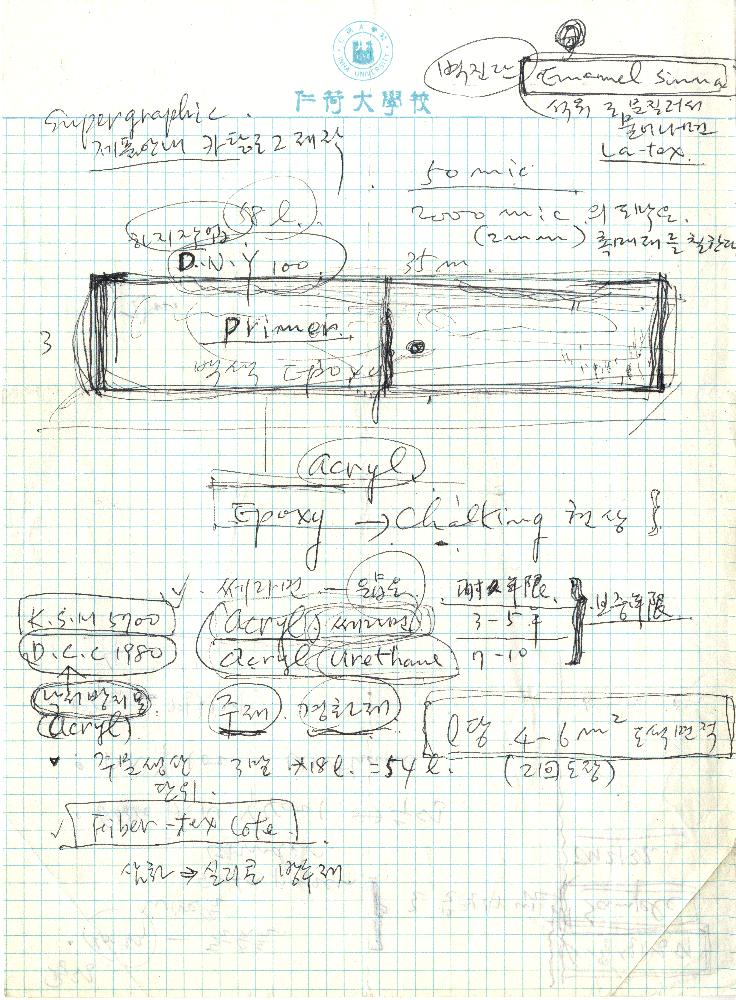 INHA UNIVERSITY
仁荷大學校
벽진각 Enamel Sinna
Supergraphic.
제품안내 카탈로그 제작
La-tex.
50 mic
2000 mic 의 도막은.
(2mm) 혹매래를 칠한다
하지작업 58 l.
D.N.Y 100.
35 m.
3
Primer.
백색 Epoxy
acryl
Epoxy → Chalking 현상
쎄라믹 - 耐久年限.
K.S.M 5700
D.C.C 1980
acryl 쎄라믹 3-5 年 보증年限
acryl Urethane 7-10
낙서방지용
(acryl)
주제. 경화제
l당 4-6 m² 도색면적
(2회 도장)
주문생산 3말 ×18 l. = 54 l.
단위.
Fiber-tex Cote.
삼화 → 실리콘 방수제